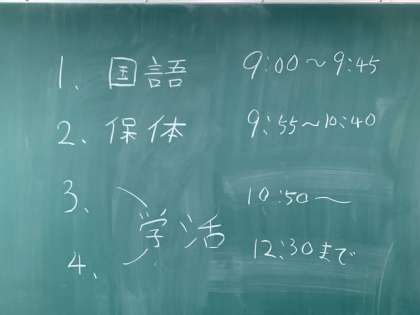 1、国語 9:00～9:45
2、保体 9:55～10:40
3、 10:50～
学活
4、 12:30まで